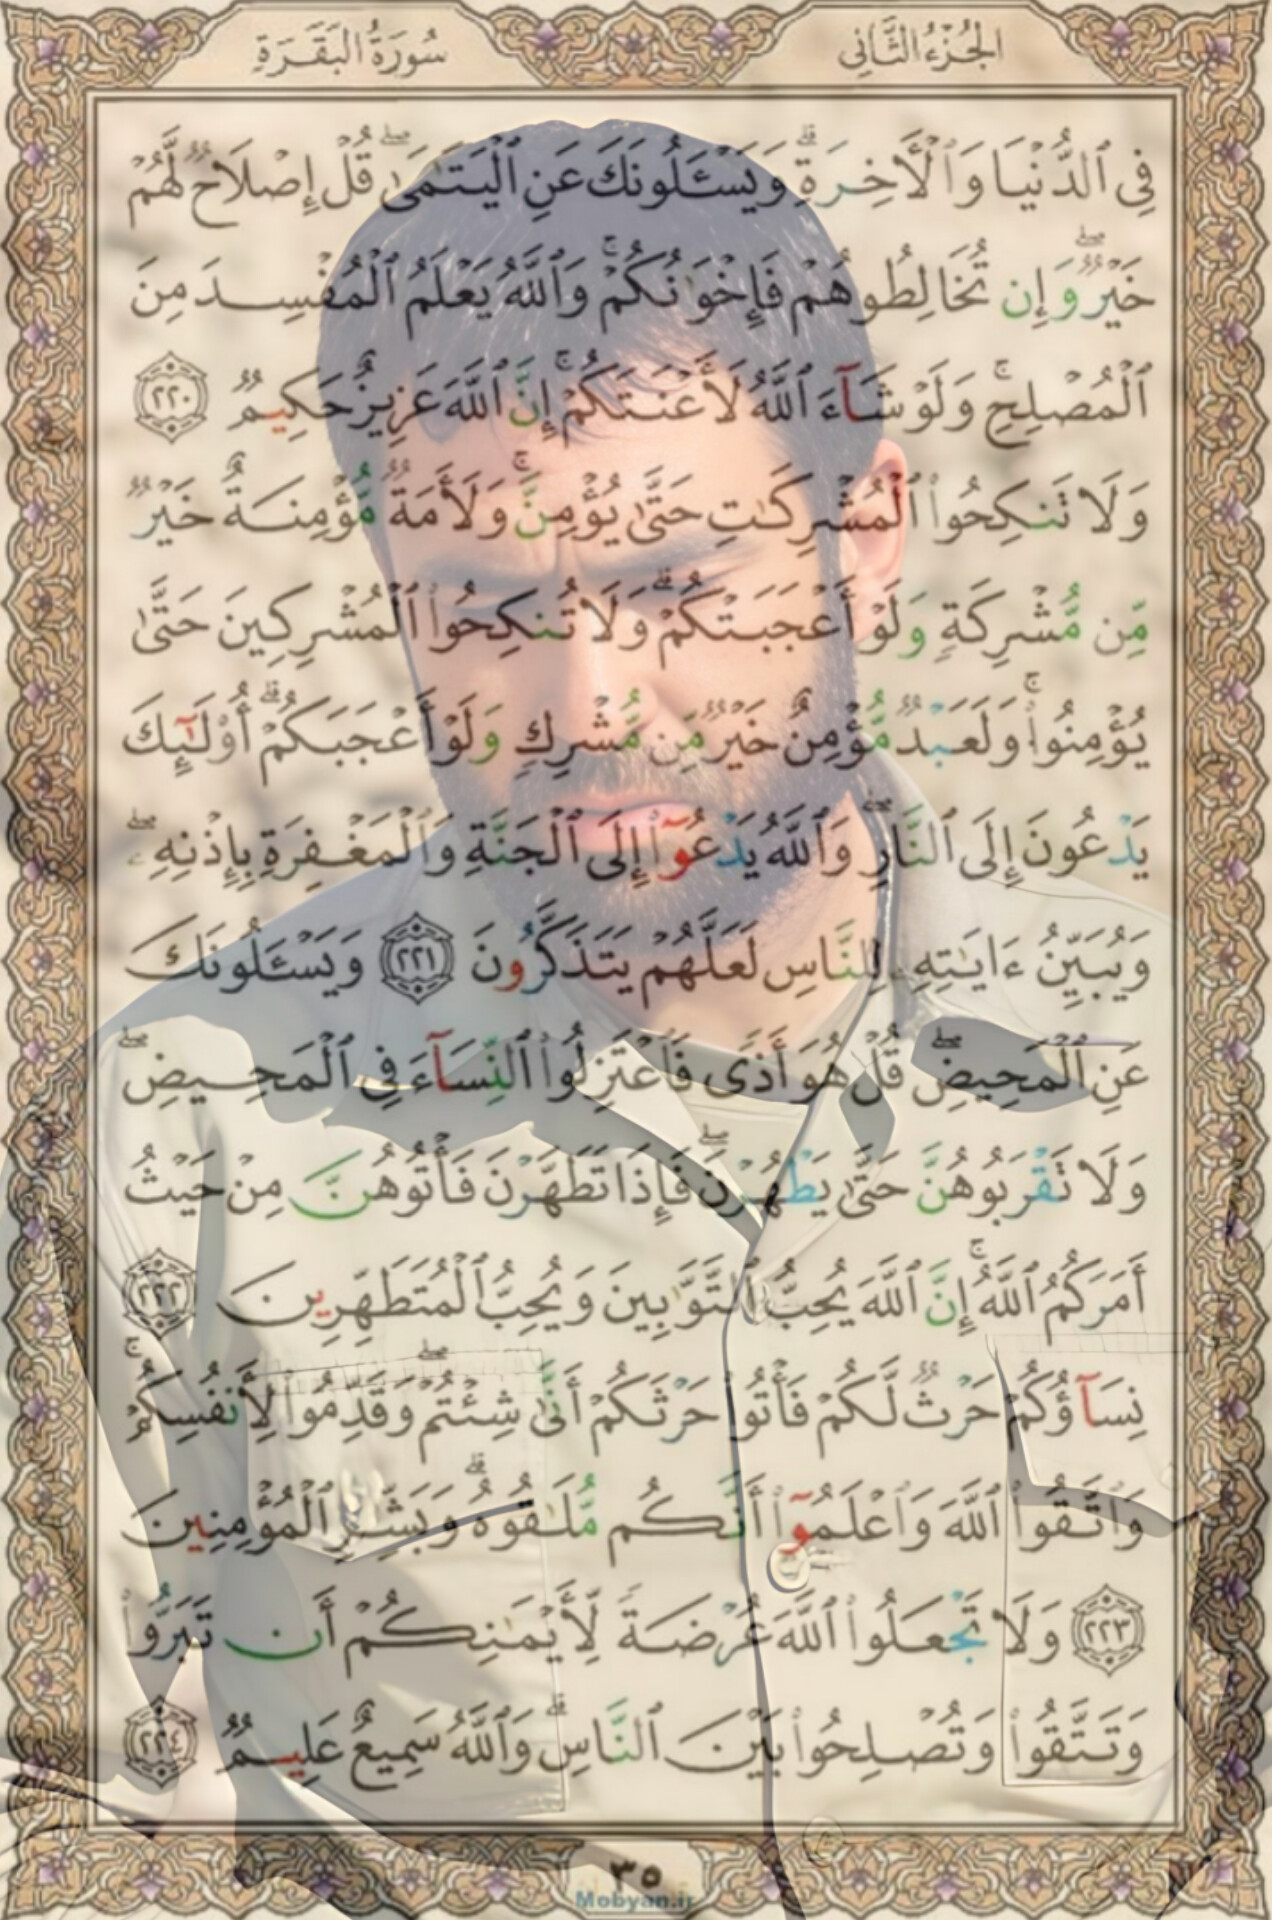 الجُزْءُ الثَّانِى
سُورَةُ البَقَرَةِ
فِى ٱلدُّنْيَا وَٱلْءَاخِرَةِ ۗ وَيَسْـَٔلُونَكَ عَنِ ٱلْيَتَـٰمَىٰ ۖ قُلْ إِصْلَاحٌ لَّهُمْ
خَيْرٌ ۖ وَإِن تُخَالِطُوهُمْ فَإِخْوَٰنُكُمْ ۚ وَٱللَّهُ يَعْلَمُ ٱلْمُفْسِدَ مِنَ
ٱلْمُصْلِحِ ۚ وَلَوْ شَآءَ ٱللَّهُ لَأَعْنَتَكُمْ ۚ إِنَّ ٱللَّهَ عَزِيزٌ حَكِيمٌ ٢٢٠
وَلَا تَنكِحُوا۟ ٱلْمُشْرِكَـٰتِ حَتَّىٰ يُؤْمِنَّ ۚ وَلَأَمَةٌ مُّؤْمِنَةٌ خَيْرٌ
مِّن مُّشْرِكَةٍ وَلَوْ أَعْجَبَتْكُمْ ۗ وَلَا تُنكِحُوا۟ ٱلْمُشْرِكِينَ حَتَّىٰ
يُؤْمِنُوا۟ ۚ وَلَعَبْدٌ مُّؤْمِنٌ خَيْرٌ مِّن مُّشْرِكٍ وَلَوْ أَعْجَبَكُمْ ۗ أُو۟لَـٰٓئِكَ
يَدْعُونَ إِلَى ٱلنَّارِ ۖ وَٱللَّهُ يَدْعُوٓا۟ إِلَى ٱلْجَنَّةِ وَٱلْمَغْفِرَةِ بِإِذْنِهِۦ ۖ
وَيُبَيِّنُ ءَايَـٰتِهِۦ لِلنَّاسِ لَعَلَّهُمْ يَتَذَكَّرُونَ ٢٢١ وَيَسْـَٔلُونَكَ
عَنِ ٱلْمَحِيضِ ۖ قُلْ هُوَ أَذًى فَٱعْتَزِلُوا۟ ٱلنِّسَآءَ فِى ٱلْمَحِيضِ ۖ
وَلَا تَقْرَبُوهُنَّ حَتَّىٰ يَطْهُرْنَ ۖ فَإِذَا تَطَهَّرْنَ فَأْتُوهُنَّ مِنْ حَيْثُ
أَمَرَكُمُ ٱللَّهُ ۚ إِنَّ ٱللَّهَ يُحِبُّ ٱلتَّوَّٰبِينَ وَيُحِبُّ ٱلْمُتَطَهِّرِينَ ٢٢٢
نِسَآؤُكُمْ حَرْثٌ لَّكُمْ فَأْتُوا۟ حَرْثَكُمْ أَنَّىٰ شِئْتُمْ ۖ وَقَدِّمُوا۟ لِأَنفُسِكُمْ ۚ
وَٱتَّقُوا۟ ٱللَّهَ وَٱعْلَمُوٓا۟ أَنَّكُم مُّلَـٰقُوهُ ۗ وَبَشِّرِ ٱلْمُؤْمِنِينَ
٢٢٣ وَلَا تَجْعَلُوا۟ ٱللَّهَ عُرْضَةً لِّأَيْمَـٰنِكُمْ أَن تَبَرُّوا۟
وَتَتَّقُوا۟ وَتُصْلِحُوا۟ بَيْنَ ٱلنَّاسِ ۗ وَٱللَّهُ سَمِيعٌ عَلِيمٌ ٢٢٤
٣٥
Mobyan.ir